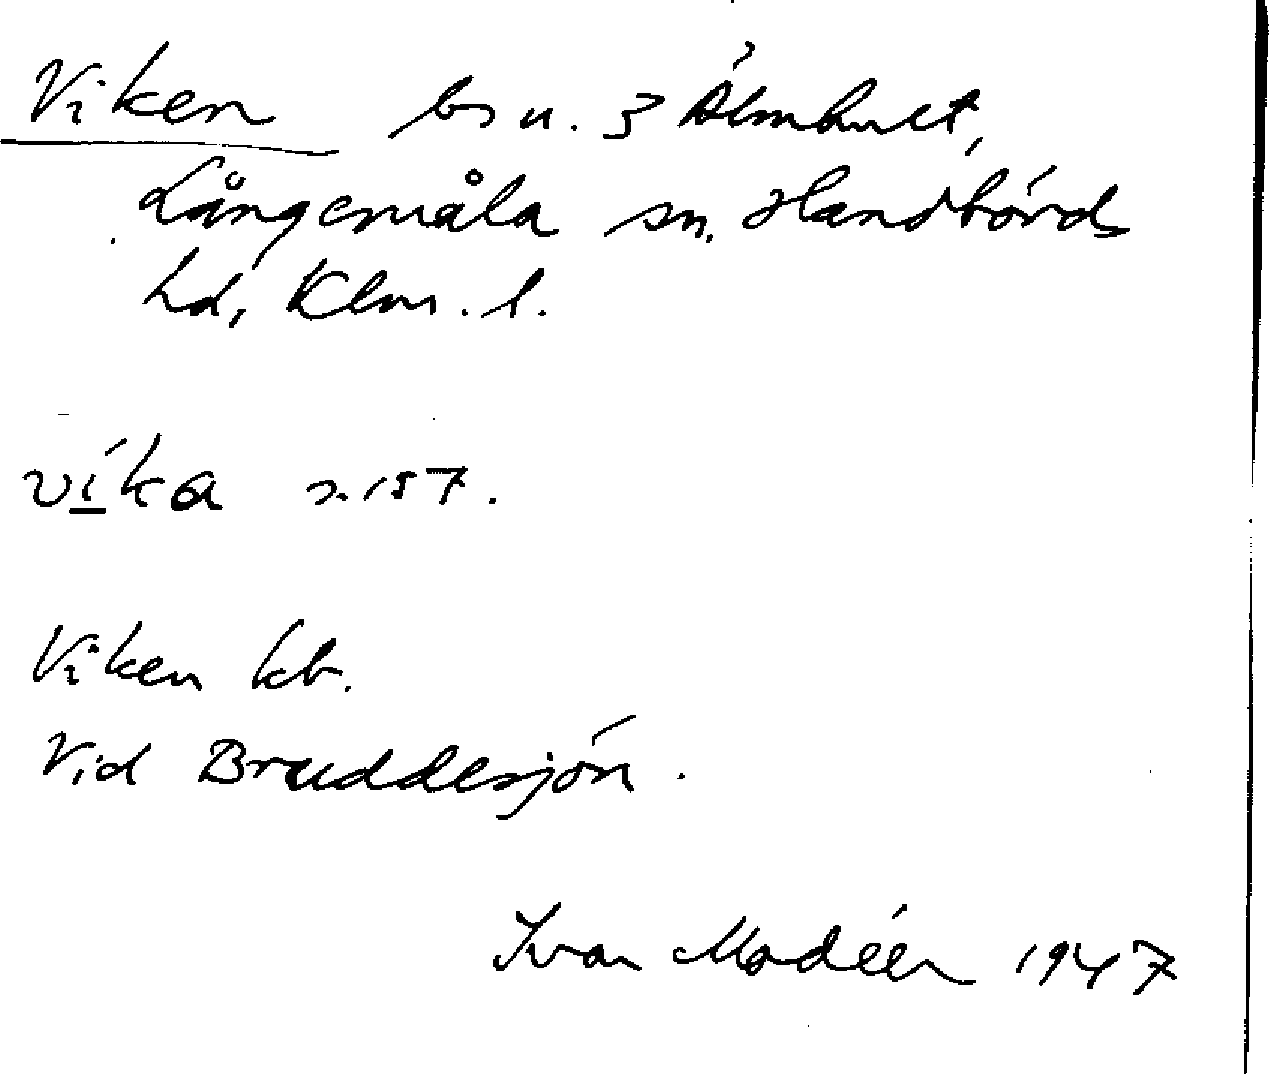 Viken bs u. 3 Älmhult,
Långemåla sn, Handbörds
hd, Klm. l.
vi̲ka s. 157.
Viken kb.
Vid Bruddesjön.
Ivar Modéer 1947